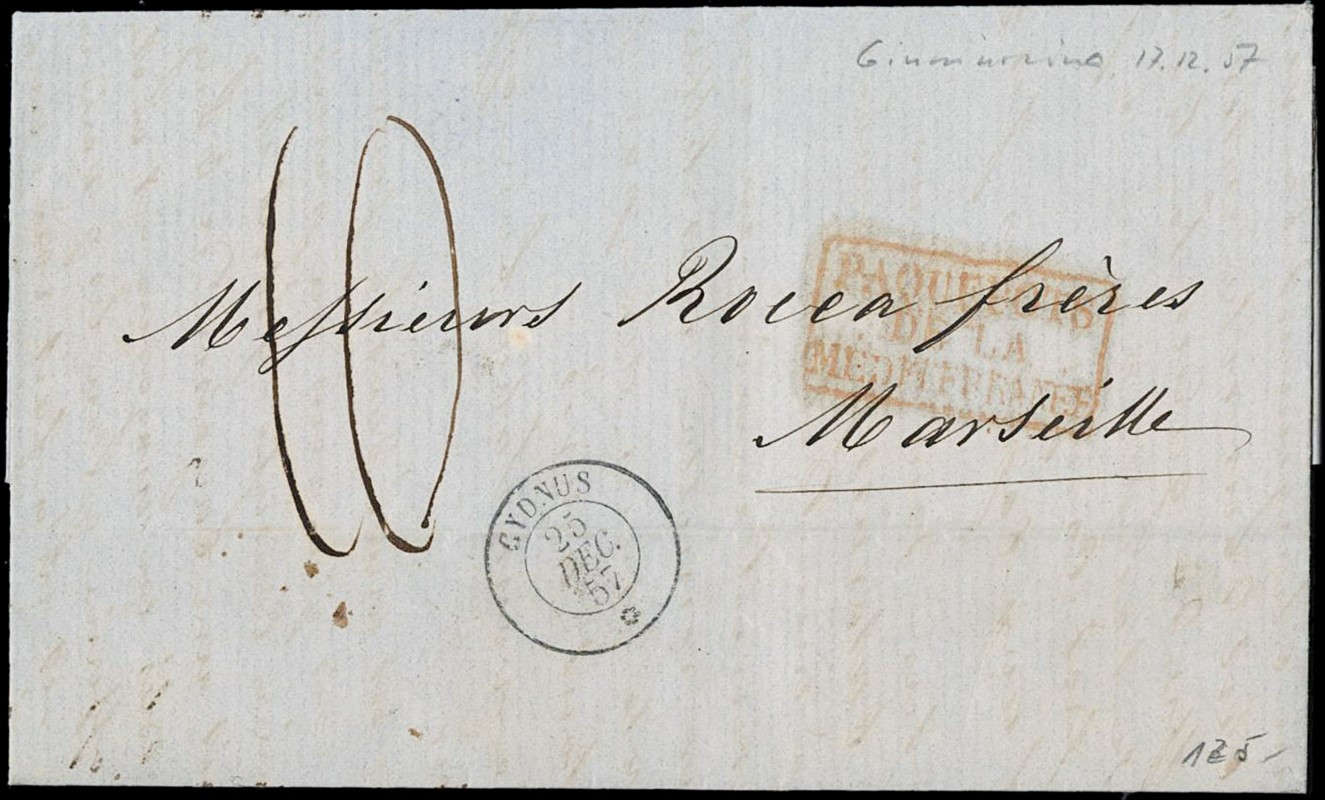 17.12.57
10
PAQUEBOTS
DE LA
MEDITERRANEE
Messieurs Rocca frères
Marseille
CYDNUS
25
DEC.
57